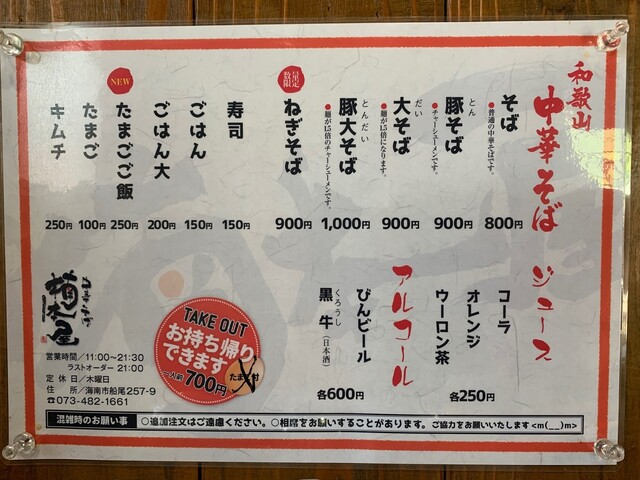 和歌山
中華そば
そば
●普通の中華そばです。
800円
とん
豚そば
●チャーシューメンです。
900円
だい
大そば
●麺が1.5倍になります。
900円
とんだい
豚大そば
●麺が1.5倍のチャーシューメンです。
1,000円
数量限定
ねぎそば
900円
寿司
150円
ごはん
150円
ごはん大
200円
NEW
たまごご飯
250円
たまご
100円
キムチ
250円
ジュース
コーラ
オレンジ
ウーロン茶
各250円
アルコール
びんビール
くろうし
黒牛(日本酒)
各600円
TAKE OUT
お持ち帰り
できます
一人前700円
たまご付
営業時間/11:00〜21:30
ラストオーダー 21:00
定休日/木曜日
住 所/海南市船尾257-9
☎073-482-1661
混雑時のお願い事
○追加注文はご遠慮ください。○相席をお願いすることがあります。ご協力をお願いいたします<m(__)m>